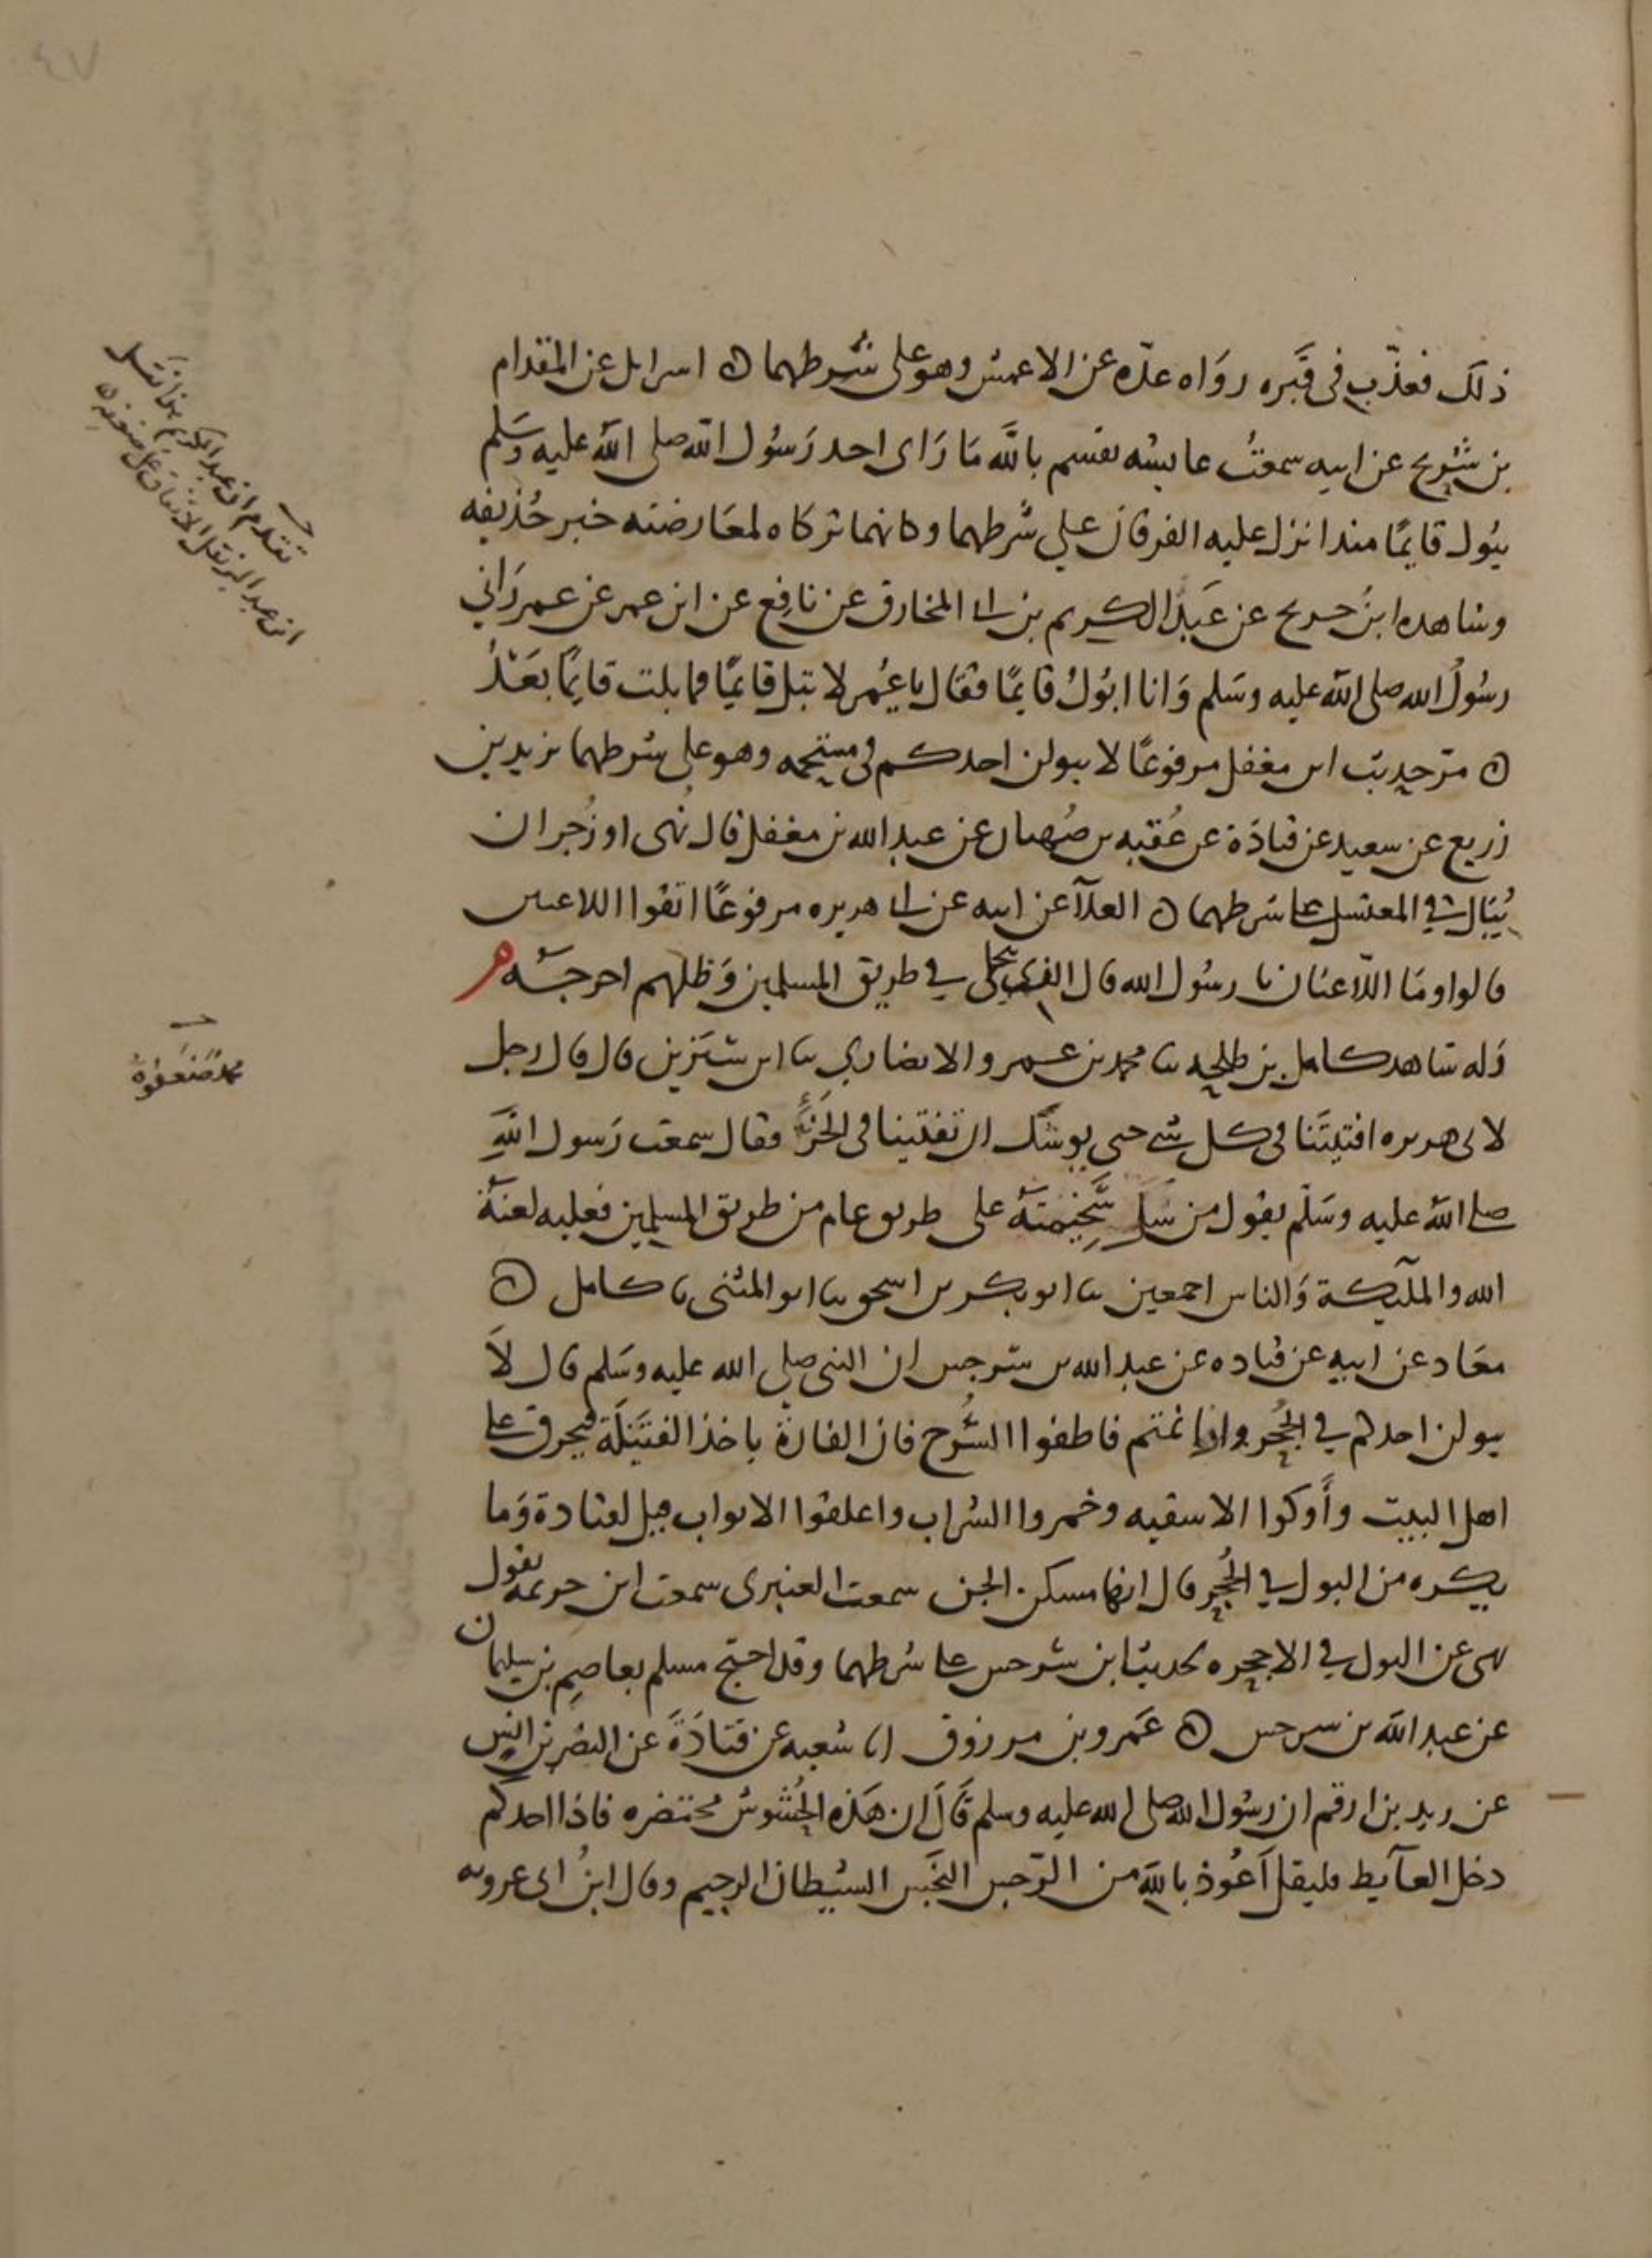 ٤٧
ذلك فعذّب فى قَبره رواه عدّه عن الاعمش وهو على شرطهما ه اسرايل عن المقدام
بن شريح عن ابيه سمعتُ عايشه تقسم بالله مَا رَاى احد رَسُول الله صلى الله عليه وسَلم
يبُول قايمًا منذ انزل عليه الفرقان على شرطهما وكانهما تركاه لمعَارضته خبر حُذيفه
وشاهده ابنُ جريج عن عَبد الكريم بن ابى المخارق عن نافِع عن ابن عمر عن عمر رَاني
رسُولُ الله صلى الله عليه وسَلم وَانا ابُولُ قايمًا فقال يا عُمر لا تبل قايمًا فما بلت قايمًا بعَدُ
ه مرّ حديث ابن مغفل مرفوعًا لا يبولن احدكم فى مستحمه وهو على شرطهما يزيد بن
زريع عن سعيد عن قتادَة عن عُقبه بن صُهبان عن عبد الله بن مغفل قال نُهى او زُجر ان
يُبَال فى المغتسل على شرطهما ه العلآ عن ابيه عن ابى هريره مرفوعًا اتقوا اللاعنين
قالوا ومَا اللّاعنان يا رسُول الله قال الذى يتخلى في طريق المسلمين وَظلهم اخرجَه م
وَله شاهد كامل بن طلحه ثنا محمد بن عمرو الانصاري ثنا ابن سيرين قال قال رجل
لابى هريره افتيتَنا فى كل شى حتى يوشك ان تفتينا فى الخرءِ فقال سمعت رَسول اللهِ
صلى الله عليه وسَلّم يقول من سَلّ سَخِيمتَهُ على طريق عام من طريق المسلمين فعليه لعنَة
الله والملآيكة وَالناس اجمعين ثنا ابو بكر بن اسحق ثنا ابو المثنى ثنا كامل ه
معَاد عن ابيه عن قتاده عن عبد الله بن سَرجس ان النبى صلى الله عليه وسَلم قال لاَ
يبولن احدكم في الجُحر واذا نمتم فاطفوا السُّرج فان الفارة ياخذ الفتيلَة فيحرق على
اهل البيت وأَوكوا الاسقيه وخمروا الشراب واغلقوا الابواب قيل لقتادة وَما
يكره من البول في الجُحر قال انها مسكن الجن سمعت العنبرى سمعت ابن خزيمه يقول
نهى عن البول في الاجحره لحديث ابن سرجس على شرطهما وقد احتج مسلم بعاصِم بن سليمان
عن عبد الله بن سرجس ه عَمرو بن مرزوق انا شعبه عن قتادَةَ عن النضر بن انس
عن زيد بن ارقم ان رسُول الله صلى الله عليه وسلم قَالَ ان هَذه الحُشوش محتضره فاذا احدكم
دخل الغآيط فليقل اَعُوذ باللهِ من الرّجس النَجس الشيطان الرجيم وقال ابنُ ابى عروبه
تقدم ان عبد الكريم
ابن عبد البر نقل الاتفاق على ضعفه
محمد ضعفوهُ